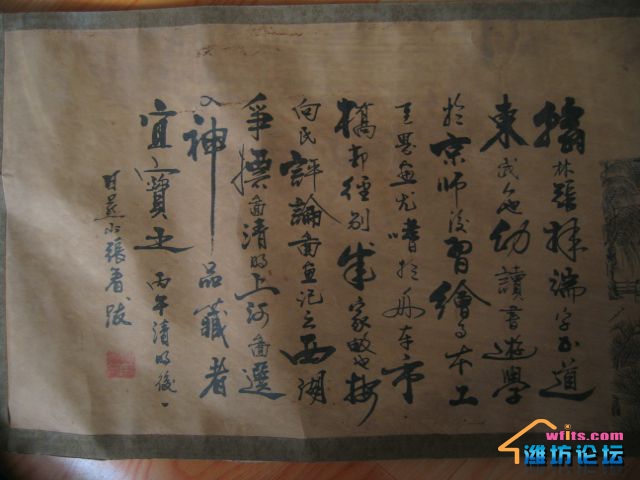 翰林張擇端字正道
東武人也幼讀書遊學
於京師後習繪事本工
其界畫尤嗜於舟車市
橋郭徑別成家數也按
向氏評論圖畫記云西湖
爭標圖清明上河圖選
入神品藏者
宜寶之丙午清明後一
日燕山張著跋
wfits.com
潍坊论坛